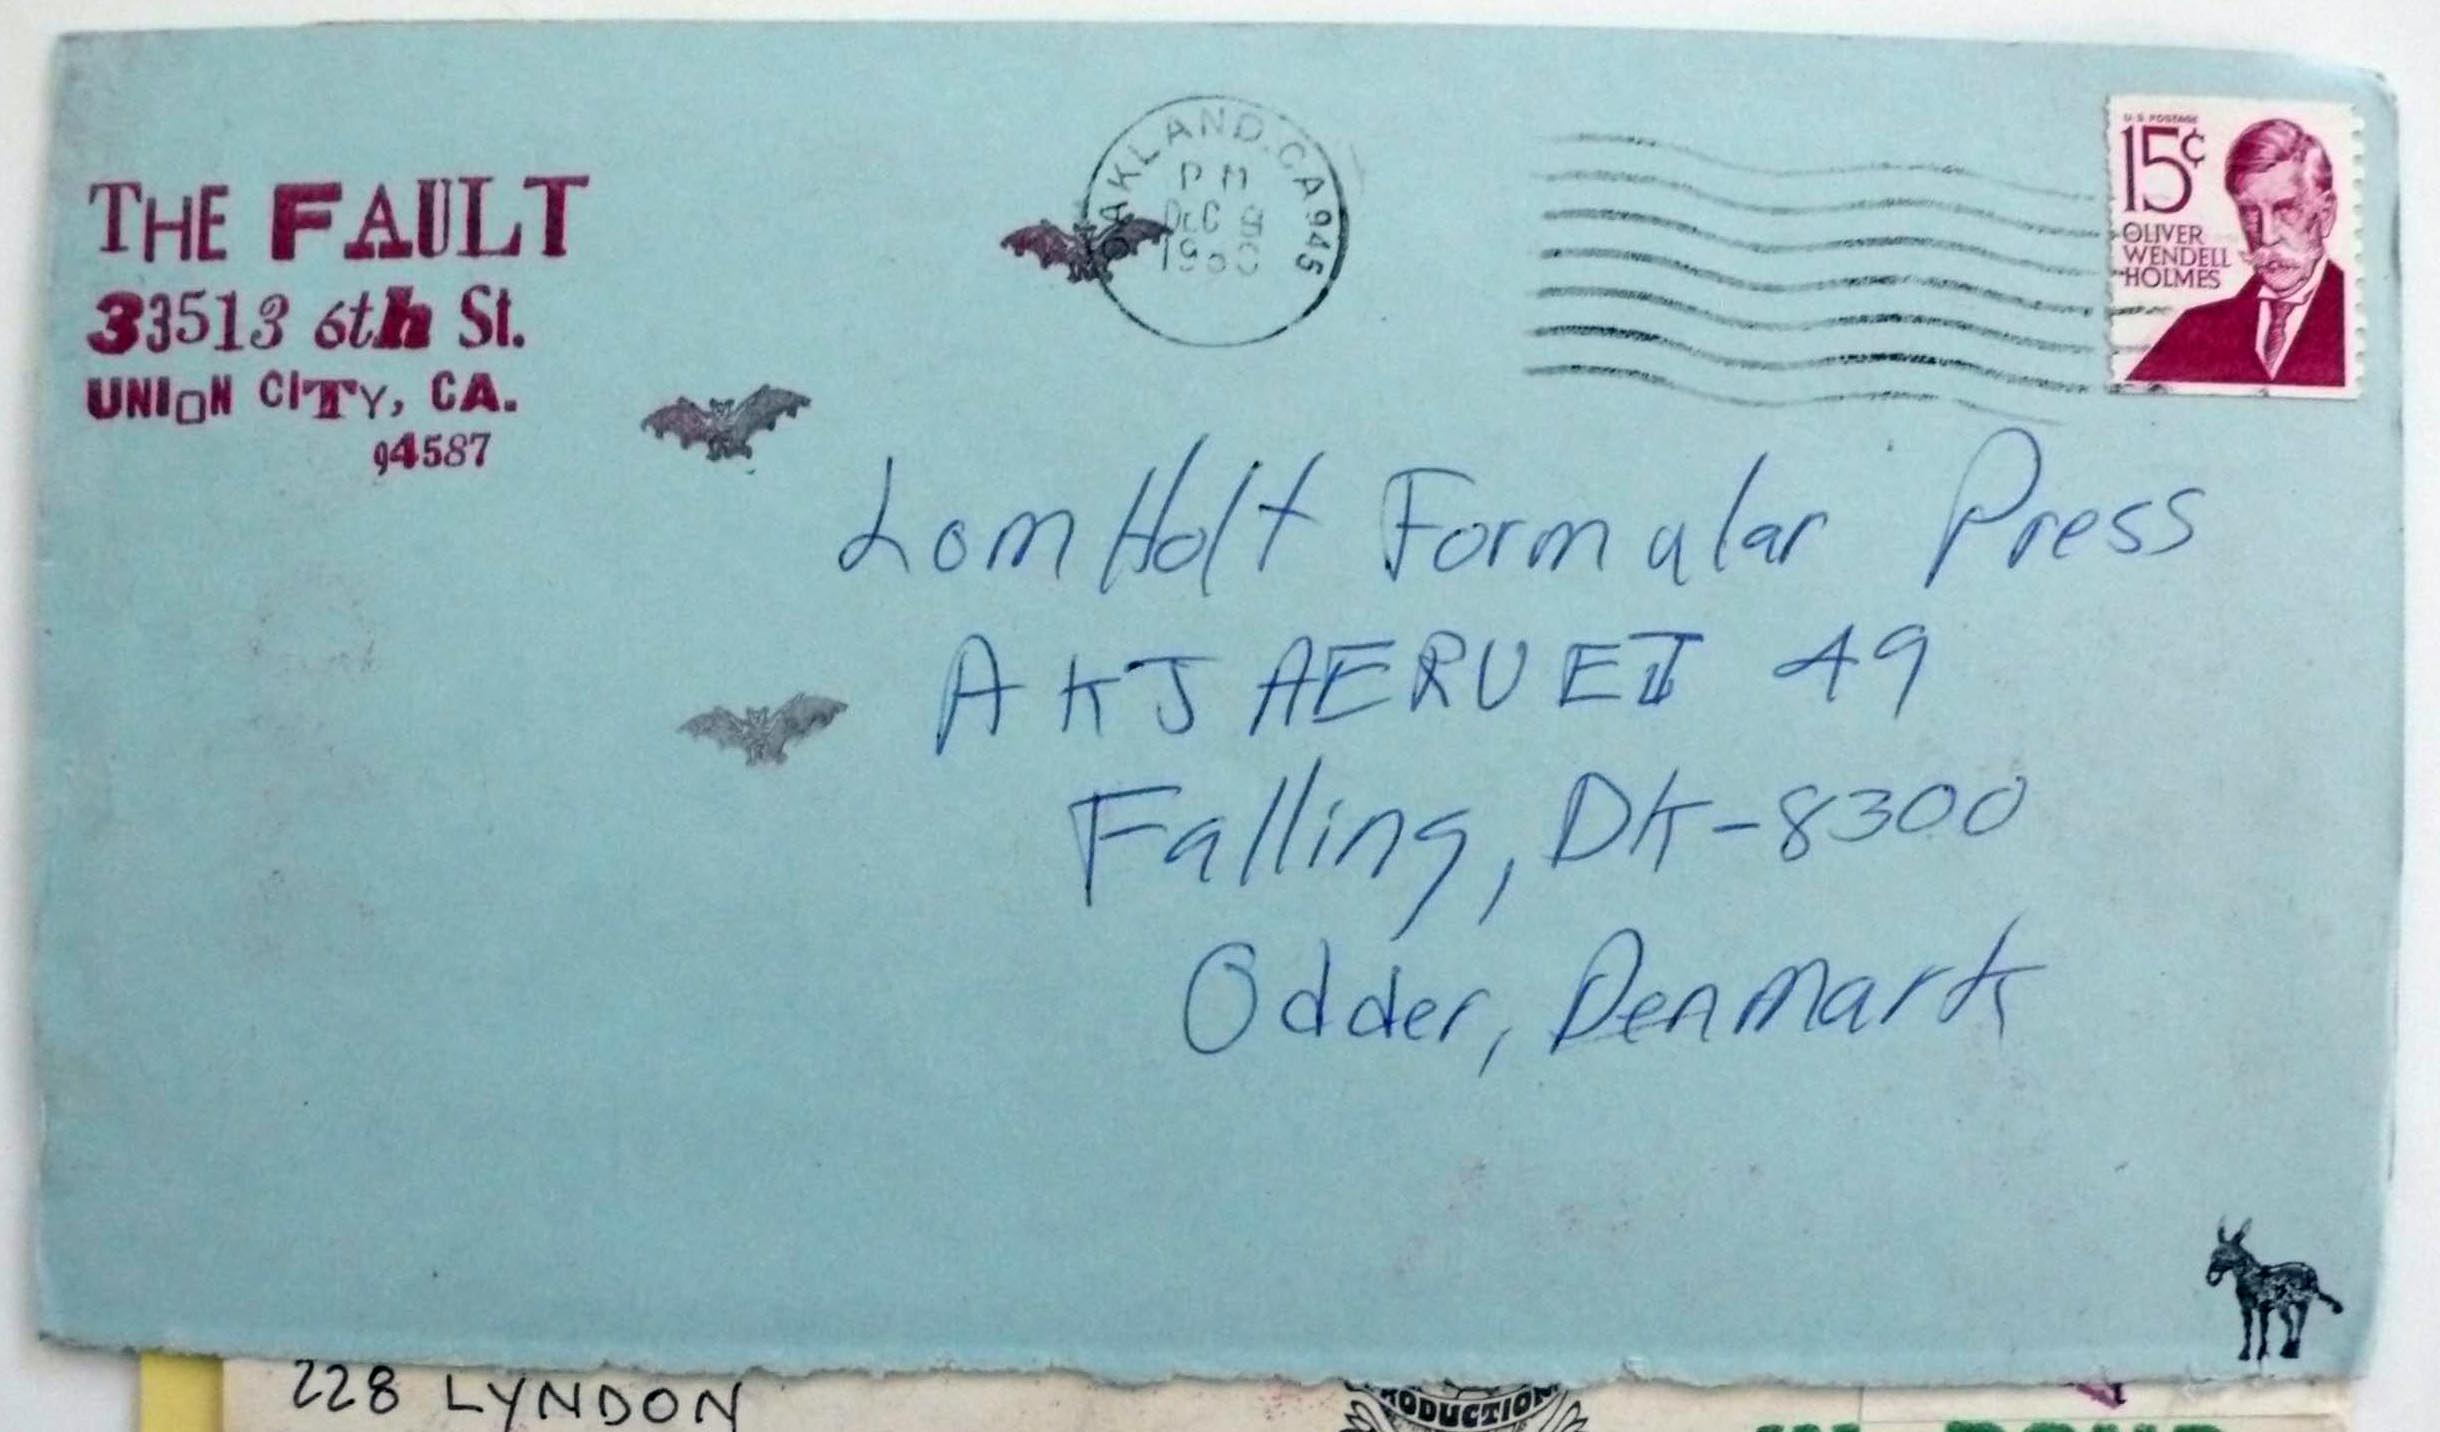 THE FAULT
33513 6th St.
UNION CITY, CA.
94587
OAKLAND, CA 945
PM
DEC
1980
U.S. POSTAGE
15¢
OLIVER
WENDELL
HOLMES
LomHolt Formular Press
AKJAERVET 49
Falling, DK-8300
Odder, Denmark
228 LYNDON
PRODUCTION